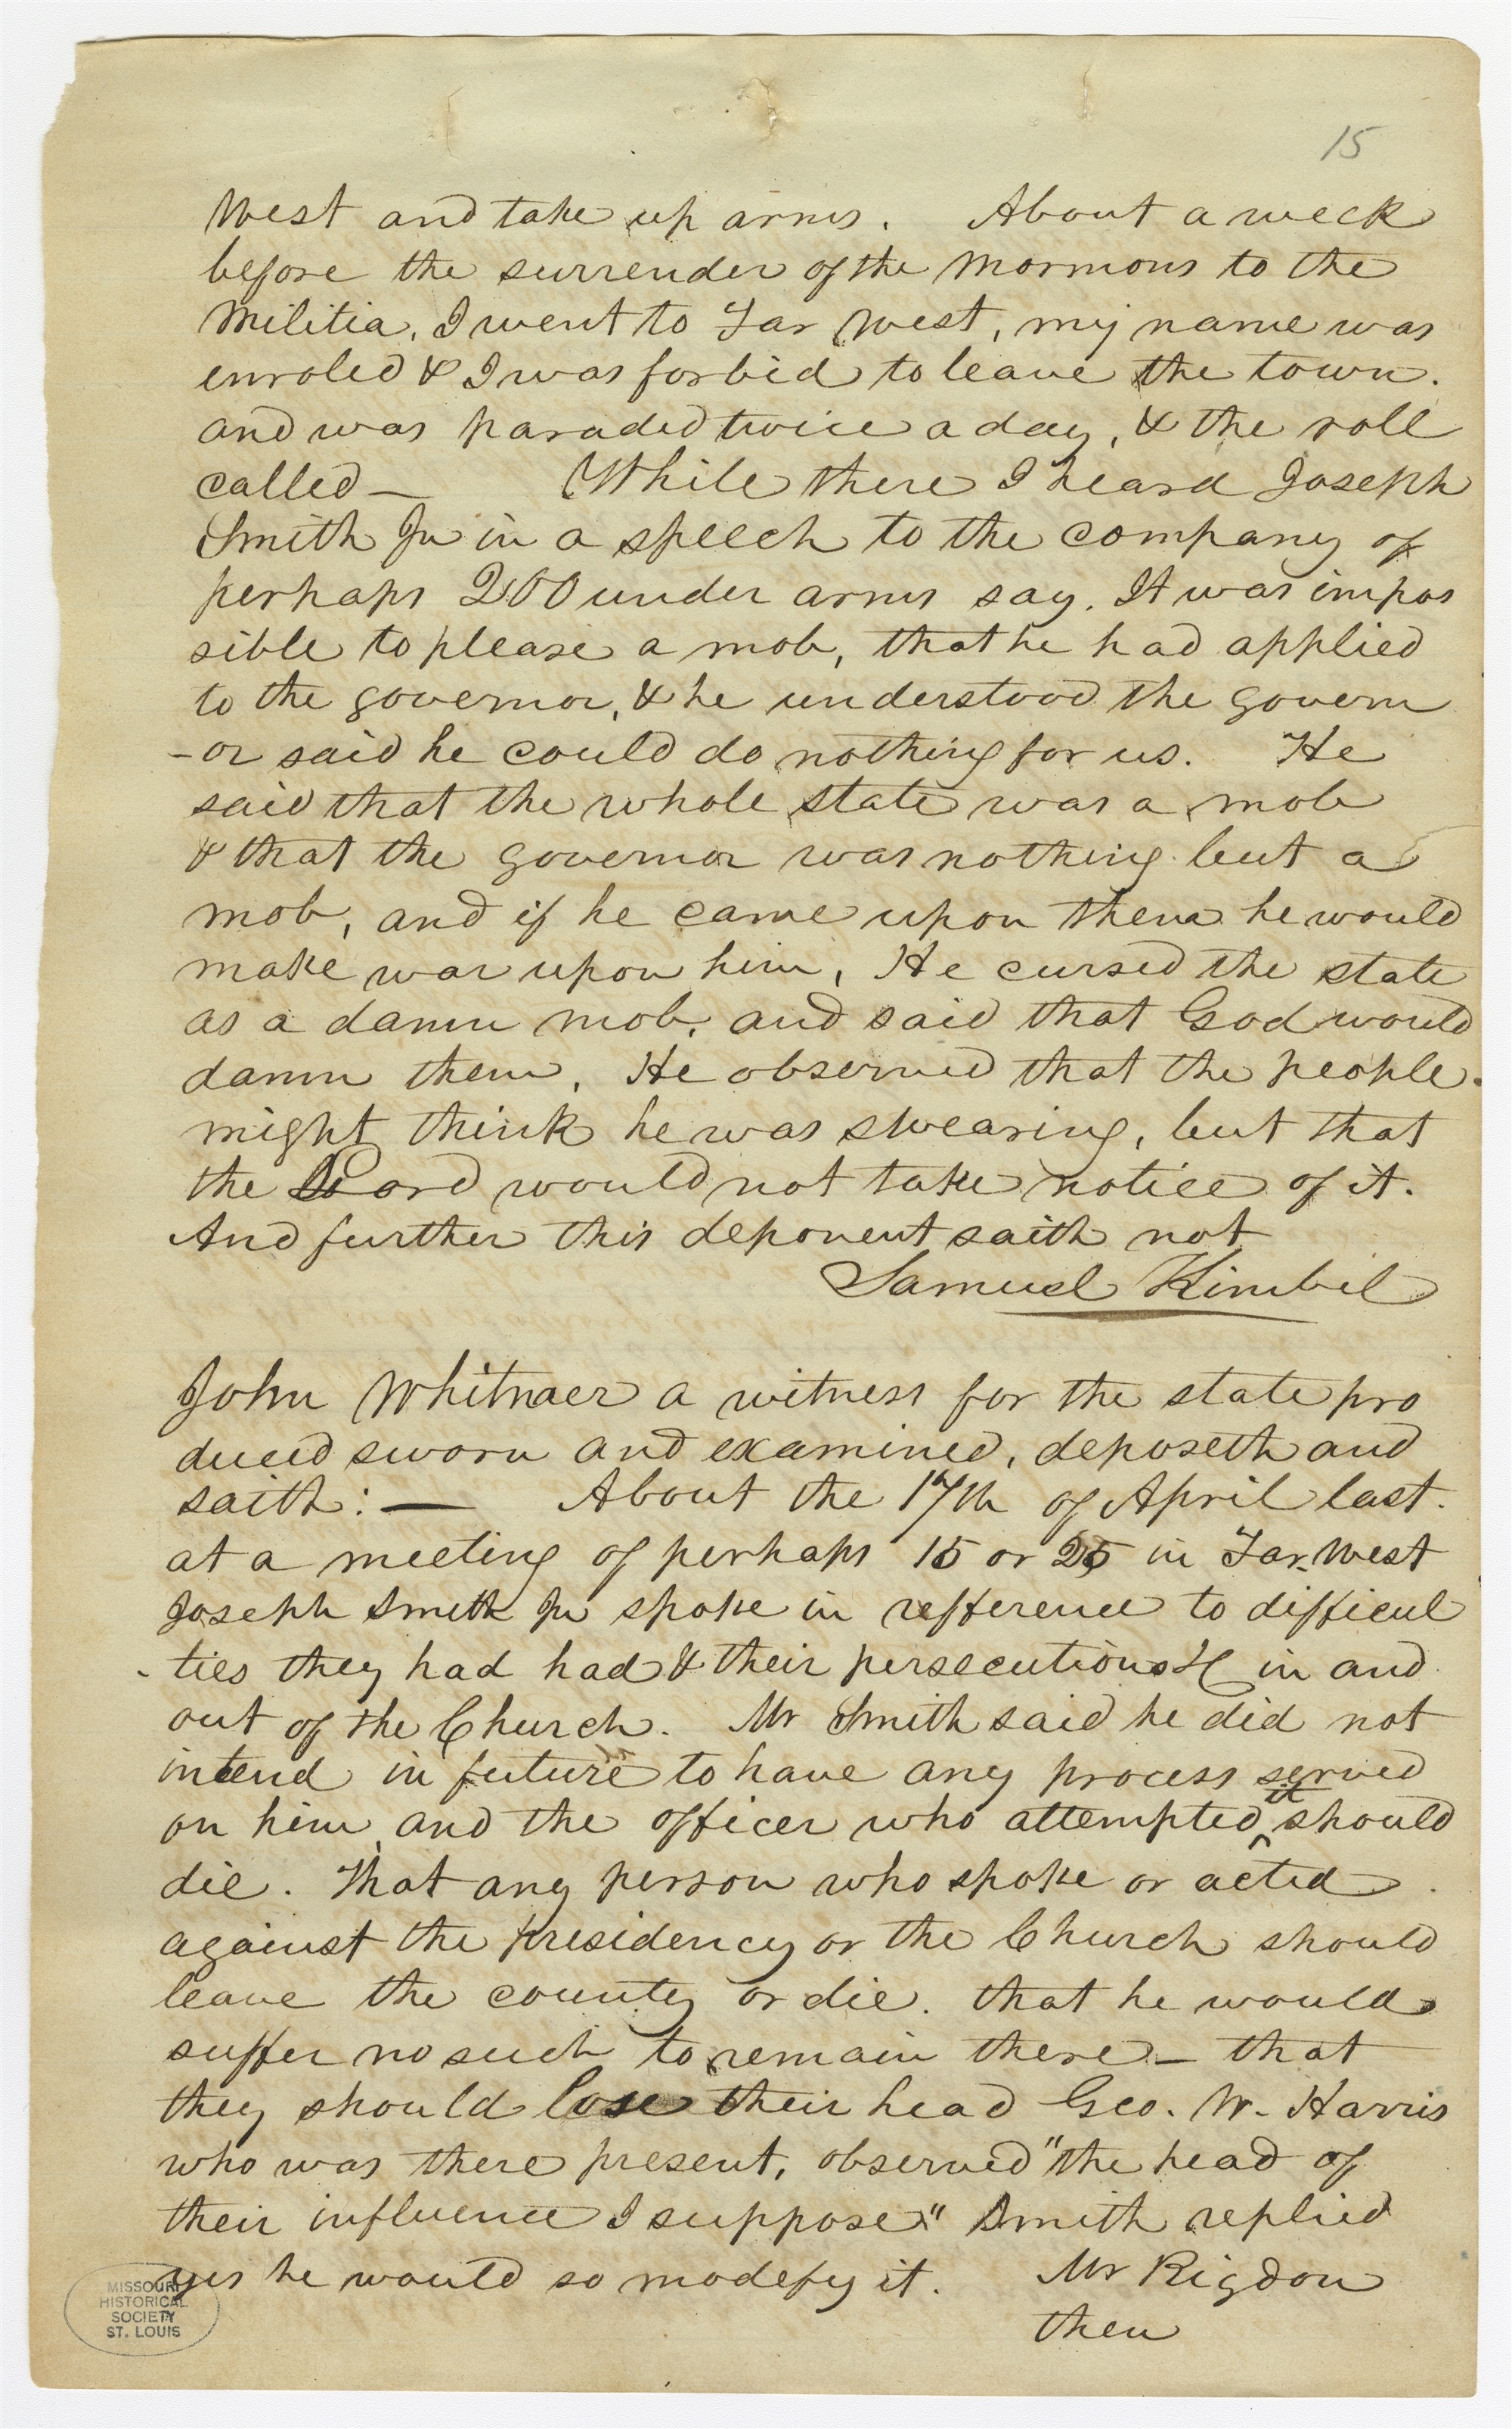 15
West and take up arms. About a week
before the surrender of the Mormons to the
Militia, I went to Far West, my name was
enroled & I was forbid to leave the town.
and was paraded twice a day, & the roll
called — While there I heard Joseph
Smith Jr in a speech to the company of
perhaps 200 under arms say. It was impos
sible to please a mob, that he had applied
to the governor, & he understood the govern
-or said he could do nothing for us. He
said that the whole state was a mob
& that the governor was nothing but a
mob, and if he came upon them he would
make war upon him, He cursed the state
as a damn mob, and said that God would
damn them, He observed that the people
might think he was swearing, but that
the Lord would not take notice of it.
And further this deponent saith not
Samuel Kimbil
John Whitmaer a witness for the state pro
duced sworn and examined, deposeth and
saith: — About the 17th of April last.
at a meeting of perhaps 15 or 25 in Far West
Joseph Smith Jr spoke in refference to difficul
-ties they had had & their persecutions &C in and
out of the Church. Mr Smith said he did not
intend in future to have any process served
on him, and the officer who attempted it should
die. That any person who spoke or acted
against the presidency or the Church should
leave the county or die. that he would
suffer no such to remain there — that
they should lose their head Geo. W. Harris
who was there present, observed "the head of
their influence I suppose" Smith replied
yes he would so modefy it. Mr Rigdon
then
MISSOURI
HISTORICAL
SOCIETY
ST. LOUIS